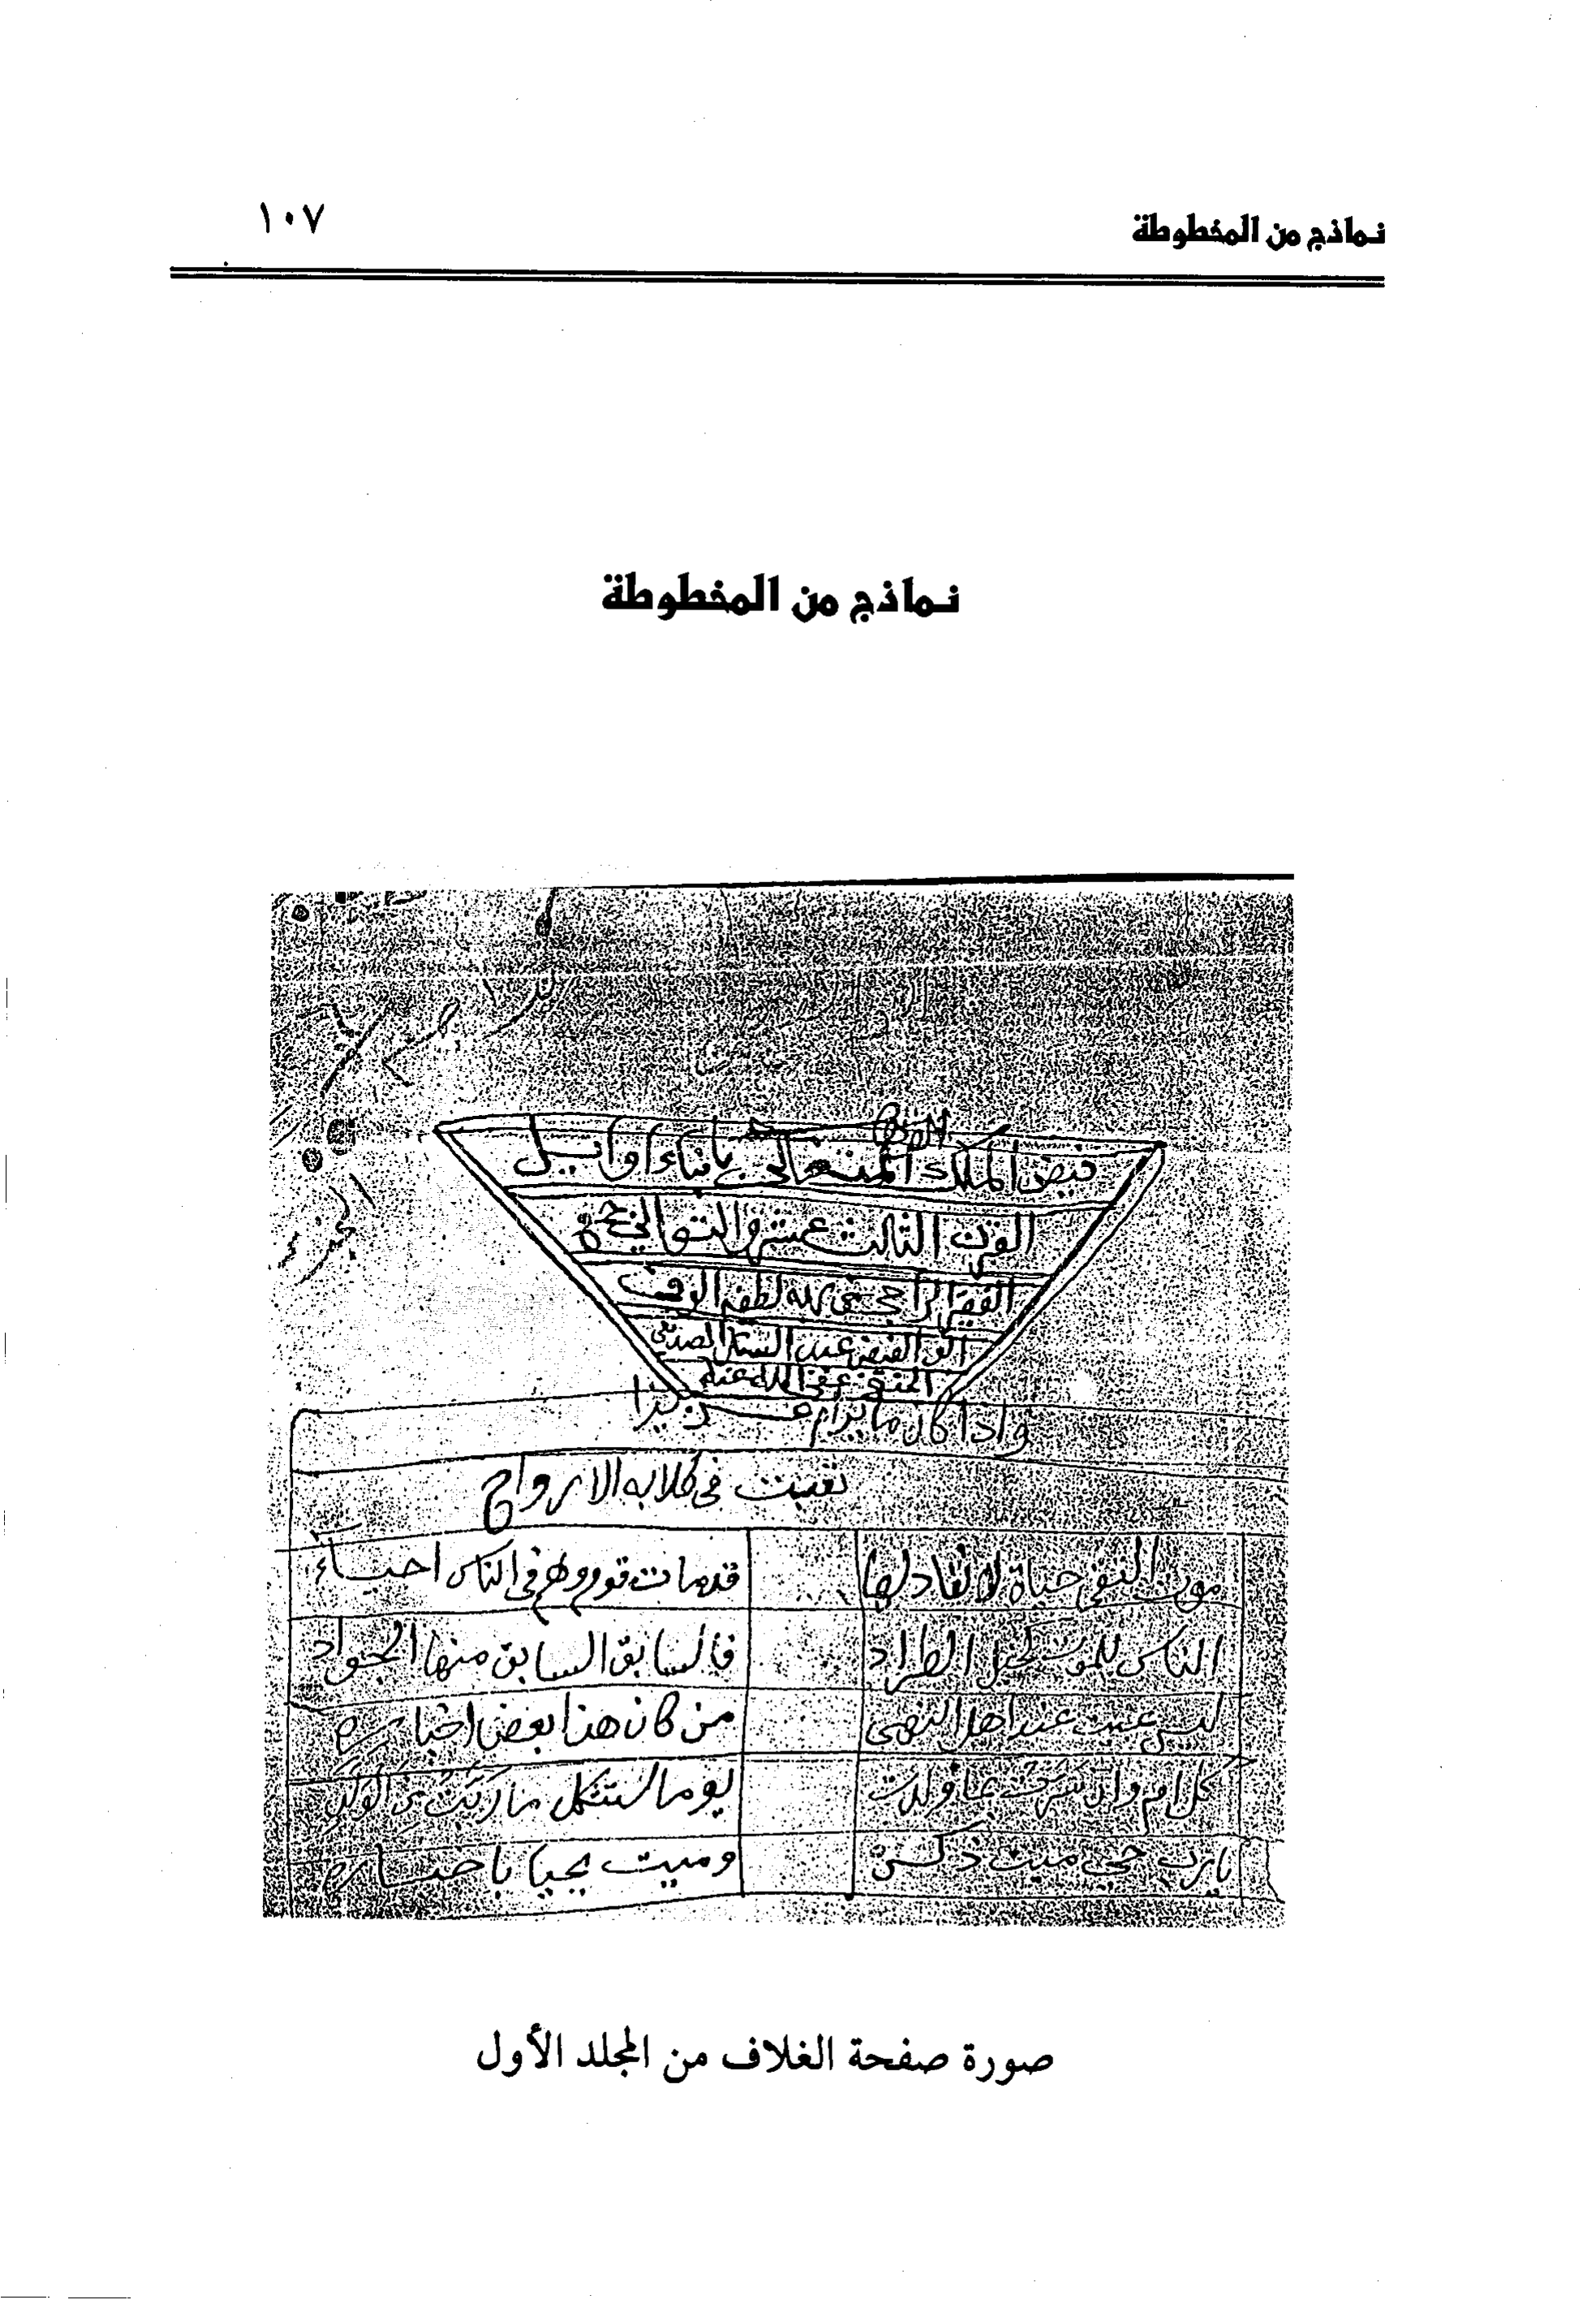 نماذج من المخطوطة ١٠٧
نماذج من المخطوطة
فيض الملك المتعالي بانباء اوايل
القرن الثالث عشر والتوالي جمع
الفقير الراجي لطفه
ابو الفيض عبد الستار الصديقي
الحنفي عفى الله عنه
واذا كان ما يرام
تعبت في الارواح
موت التقي حياة لا نفاد لها قد مات قوم وهم في الناس احياء
الناس للموت كخيل الطراد فالسابق السابق منها الجواد
عند اهل النهى من كان هذا بعض اخباره
كل ام وان سرت بما ولدت يوما ستثكل ما ربت من الولد
يارب حي ميت ذكره وميت يحيا باخباره
صورة صفحة الغلاف من المجلد الأول